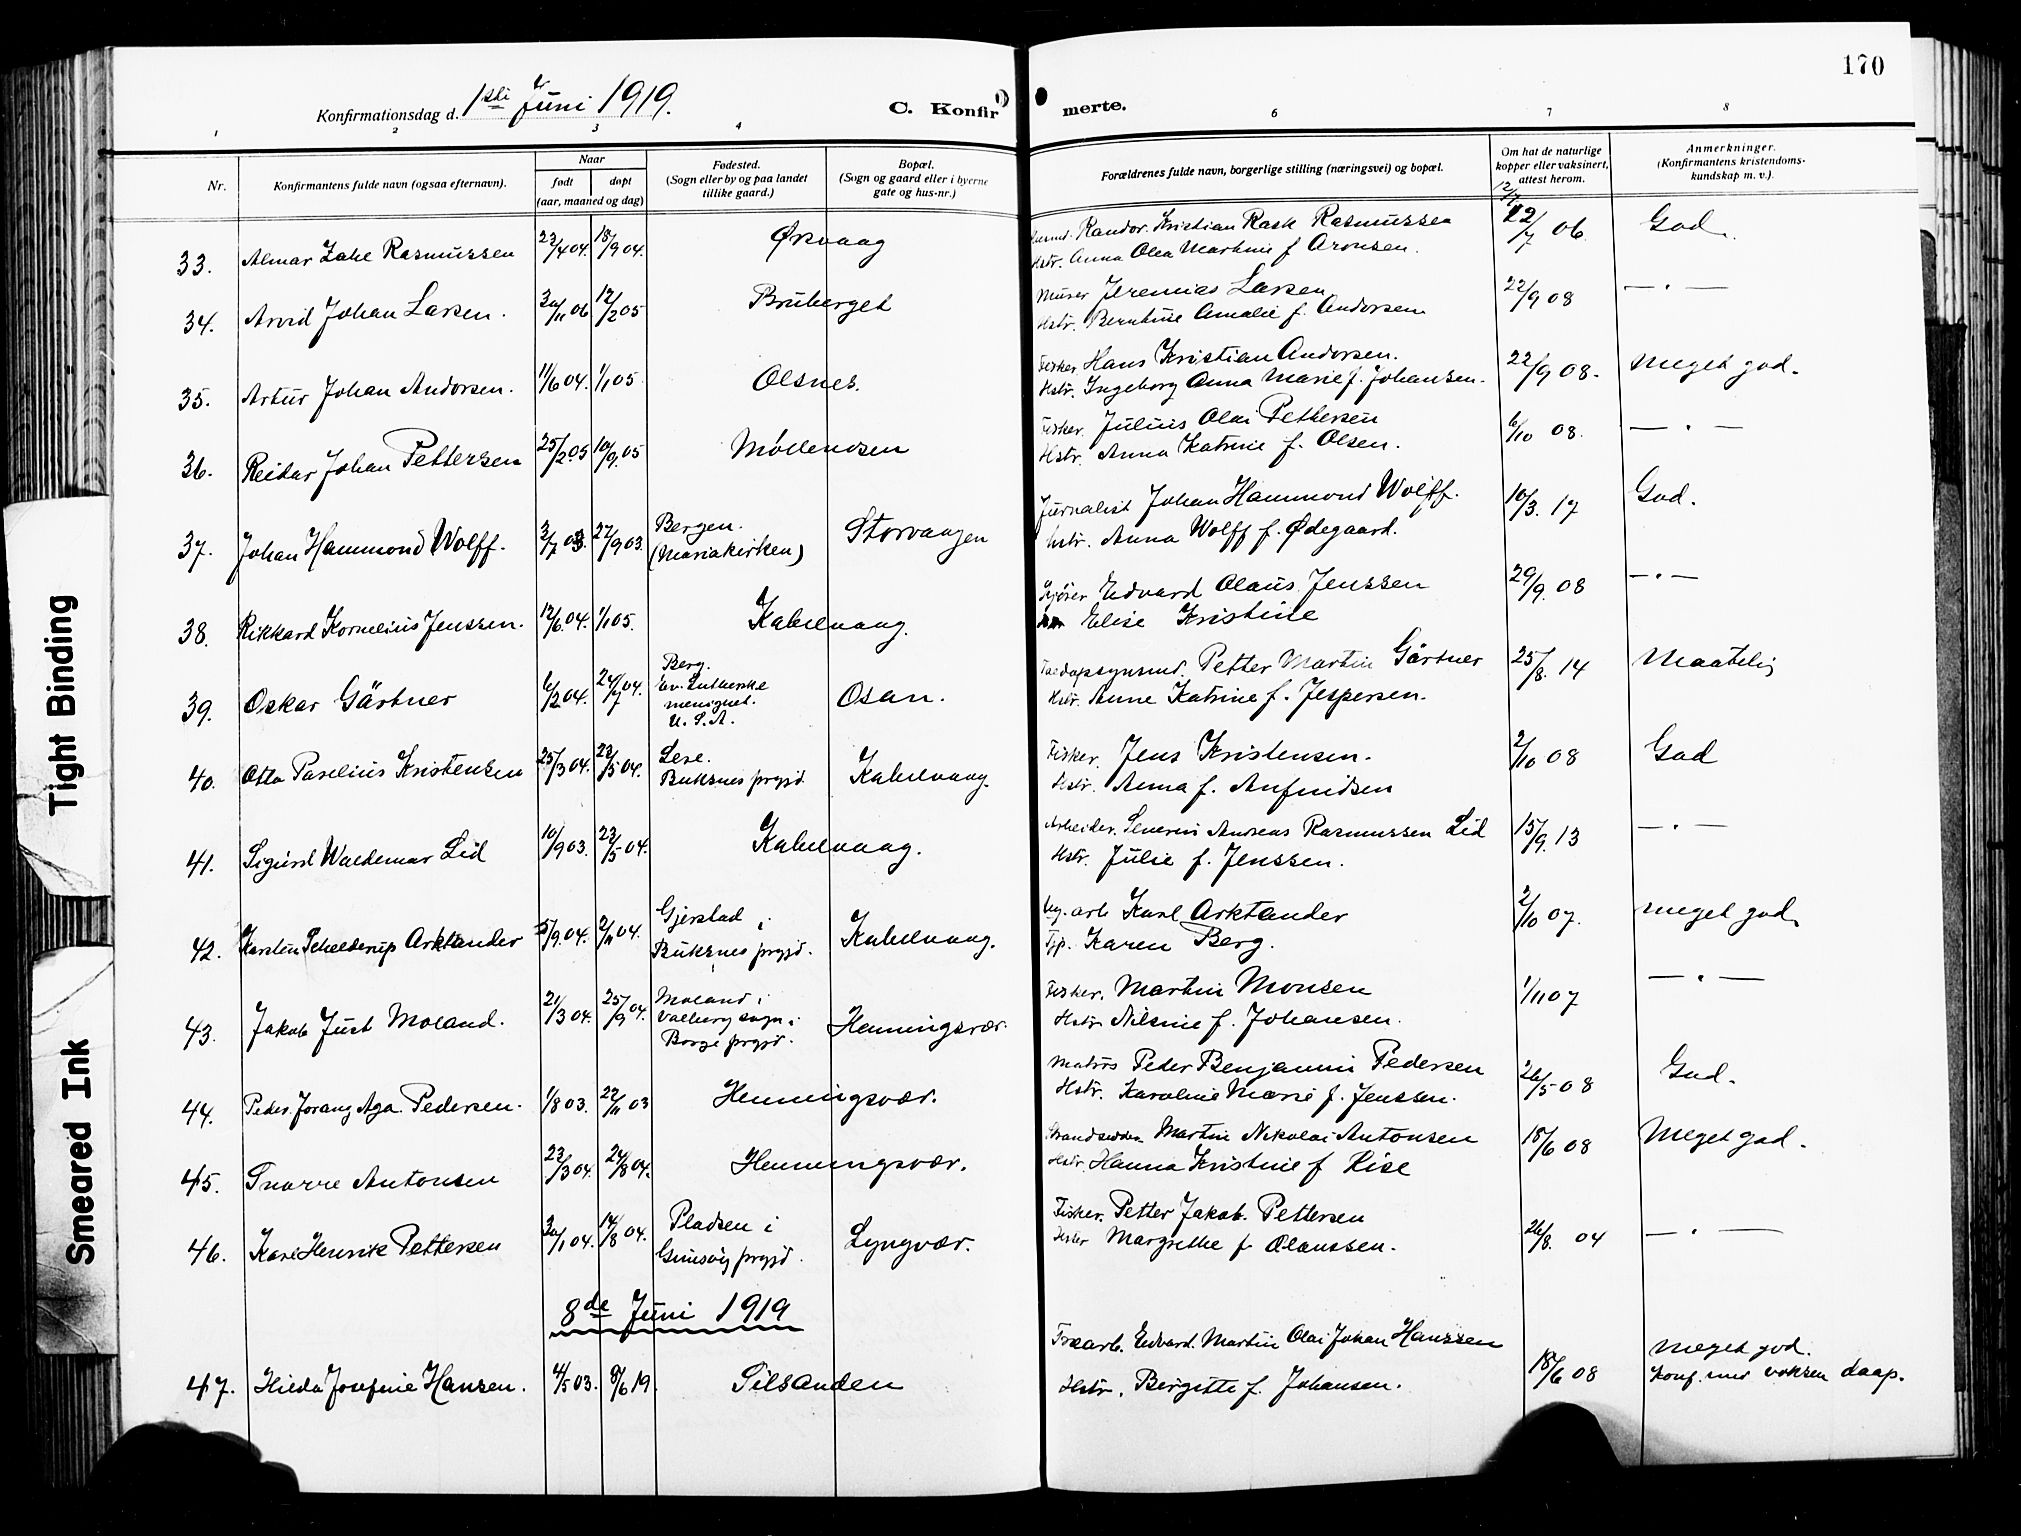 170
Konfirmationsdag d. 1ste Juni 1919.
C. Konfirmerte.
1 2 3 4 6 7 8
Nr.
Konfirmantens fulde navn (ogsaa efternavn).
Naar
født døpt
(aar, maaned og dag)
Fødested.
(Sogn eller by og paa landet
tillike gaard.)
Bopæl.
(Sogn og gaard eller i byerne
gate og hus-nr.)
Forældrenes fulde navn, borgerlige stilling (næringsvei) og bopæl.
Om hat de naturlige
kopper eller vaksinert,
attest herom.
Anmerkninger.
(Konfirmantens kristendoms-
kundskap m. v.).
33. Almar Zahl Rasmussen 22/4 04. 18/9 04. Ørsvaag
Kristian Rask Rasmussen
Hstr. Anna Olea Martine f Aronsen. 12/7 06 God.
34. Arvid Johan Larsen. 30/11 06 12/2 05 Bruberget
Murer Jeremias Larsen
Hstr. Berntine Amalie f. Andorsen 22/9 08 — " —
35. Artur Johan Andorsen. 11/6 04. 1/1 05 Olsnes.
Fisker Hans Kristian Andorsen.
Hstr. Ingeborg Anna Marie f. Johansen. 22/9 08. Meget god.
36. Reidar Johan Pettersen 25/2 05 10/9. 05 Møllenosen
Fisker. Julius Olai Pettersen
Hstr. Anna Katrine f. Olsen. 6/10 08. — " —
37. Johan Hammond Wolff. 2/7 03. 27/9 03. Bergen.
(Mariakirken) Storvaagen
Jurnalist Johan Hammond Wolff.
hstr. Anna Wolff f. Ødegaard. 10/3. 17 God.
38. Rikkard Kornelius Jenssen. 12/6. 04. 1/1 05. Kabelvaag.
Edvard Olaus Jenssen
Elise Kristine 29/9. 08 — " —
39. Oskar Gärtner 6/2 04. 24/7 04. Berg.
ev. Lutherske
menighet.
U. S. A. Osan.
Petter Martin Gärtner
Hstr. Anne Katrine f. Jespersen. 25/8. 14 Maatelig
40. Otto Parelius Kristensen 25/3 04. 23/5 04. Lere.
Buksnes prgjd Kabelvaag.
Fisker. Jens Kristensen.
Hstr. Anna f. Anfindsen 2/10 08 God
41. Sigurd Waldemar Lid 10/9 03. 23/5 04. Kabelvaag.
Arbeider. Severin Andreas Rasmussen Lid
Hstr. Julie f. Jenssen. 15/9. 13 — " —
42. Karsten Schelderup Arktander 5/9. 04. 2/11 04. Gjerstad i
Buksnes prgjd. Kabelvaag.
arb Karl Arktander
Karen Berg. 2/10 07. Meget god.
43. Jakob Just Moland. 21/3 04. 25/9 04. Moland i
Valberg sogn i
Borge prgjd. Henningsvær.
Fisker. Martin Monsen
Hstr Nilsine f. Johansen. 1/11 07 — " —
44. Peder Jorang Aga. Pedersen. 1/8 03. 22/11 03 Henningsvær.
Matros Peder Benjamin Pedersen
Hstr. Karoline Marie f. Jenssen. 26/5 08 God.
45. Snorre Antonsen 23/3 04. 24/8 04. Henningsvær.
Strandsidder Martin Nikolai Antonsen
Hstr. Hanna Kristine f Rise 18/6 08 Meget god.
46. Karl Henrik Pettersen 30/1 04. 14/8 04. Pladsen i
Gimsøy prgjd. Lyngvær.
Fisker. Petter Jakob. Pettersen
Hstr Margrethe f Olaussen. 26/8. 04 — " —
8de Juni 1919
47. Hilda Josefine Hansen. 4/5 03. 8/6 19. Silsanden
Edvard Martin Olai Johan Hanssen
Hstr. Bergitte f. Johansen. 18/6 08 Meget god.
Konf. med voksen daap.
Tight Binding
Smeared Ink